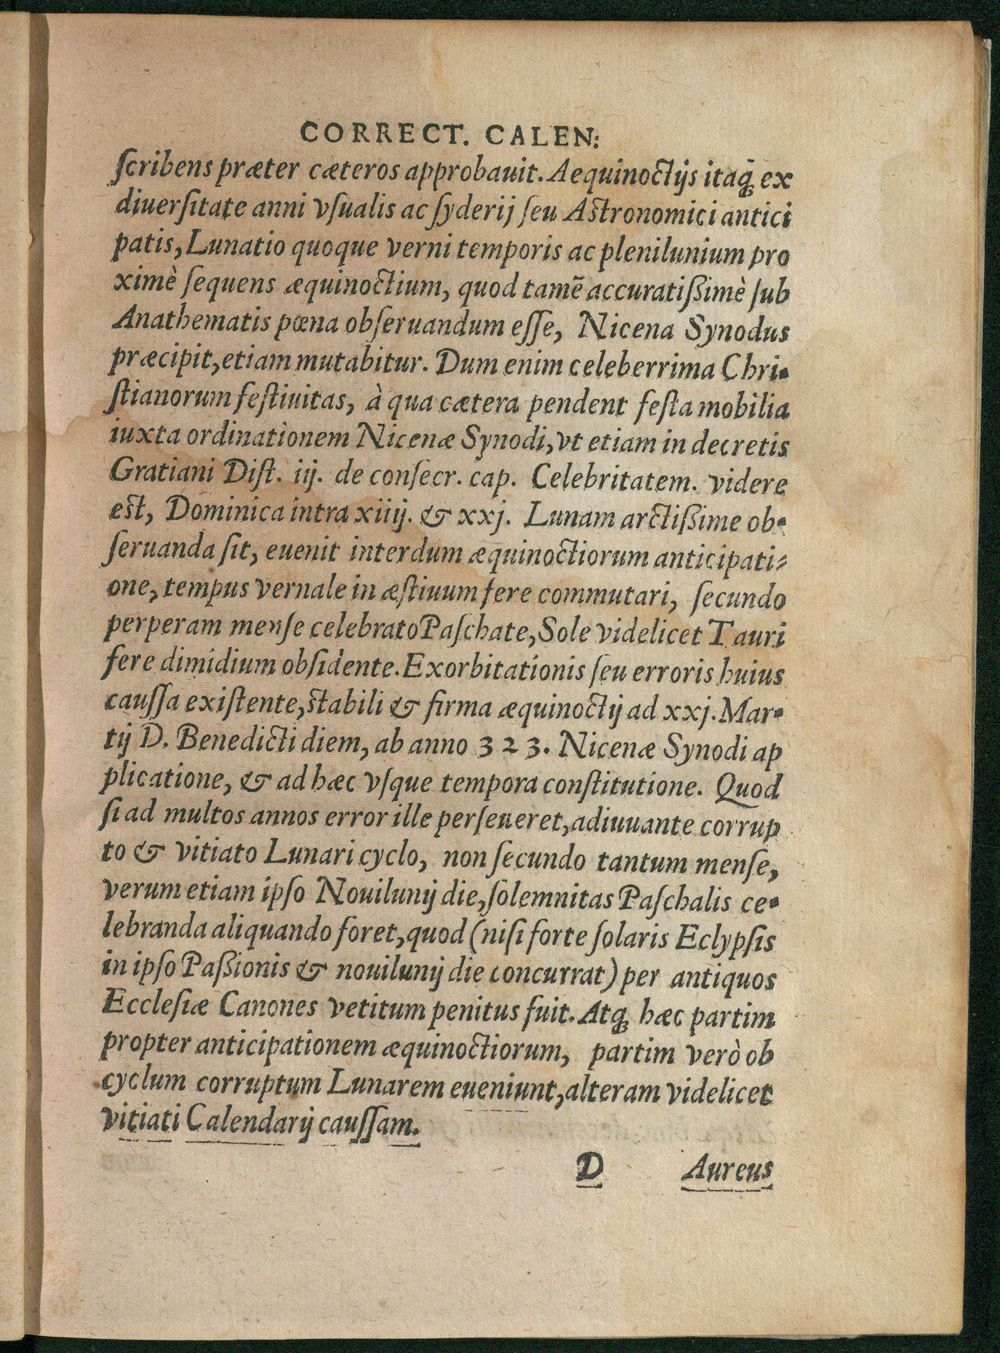 CORRECT. CALEN:
ſcribens præter cæteros approbauit. Aequinoctijs itaq́; ex
diuerſitate anni vſualis ac ſyderij ſeu Aſtronomici antici
patis, Lunatio quoque verni temporis ac plenilunium pro
ximè ſequens æquinoctium, quod tamē accuratißimè ſub
Anathematis pœna obſeruandum eſſe, Nicena Synodus
præcipit, etiam mutabitur. Dum enim celeberrima Chri-
ſtianorum feſtiuitas, à qua cætera pendent feſta mobilia
iuxta ordinationem Nicenæ Synodi, vt etiam in decretis
Gratiani Diſt. iij. de conſecr. cap. Celebritatem. videre
eſt, Dominica intra xiiij. & xxj. Lunam arctißime ob-
ſeruanda ſit, euenit interdum æquinoctiorum anticipati-
one, tempus vernale in æſtiuum fere commutari, ſecundo
perperam menſe celebrato Paſchate, Sole videlicet Tauri
fere dimidium obſidente. Exorbitationis ſeu erroris huius
cauſſa exiſtente, ſtabili & firma æquinoctij ad xxj. Mar-
tij D. Benedicti diem, ab anno 323. Nicenæ Synodi ap
plicatione, & ad hæc vſque tempora conſtitutione. Quod
ſi ad multos annos error ille perſeueret, adiuuante corrup
to & vitiato Lunari cyclo, non ſecundo tantum menſe,
verum etiam ipſo Nouilunij die, ſolemnitas Paſchalis ce-
lebranda aliquando foret, quod (niſi forte ſolaris Eclypſis
in ipſo Paßionis & nouilunij die concurrat) per antiquos
Eccleſiæ Canones vetitum penitus fuit. Atq́; hæc partim
propter anticipationem æquinoctiorum, partim verò ob
cyclum corruptum Lunarem eueniunt, alteram videlicet
vitiati Calendarij cauſſam.
D Aureus